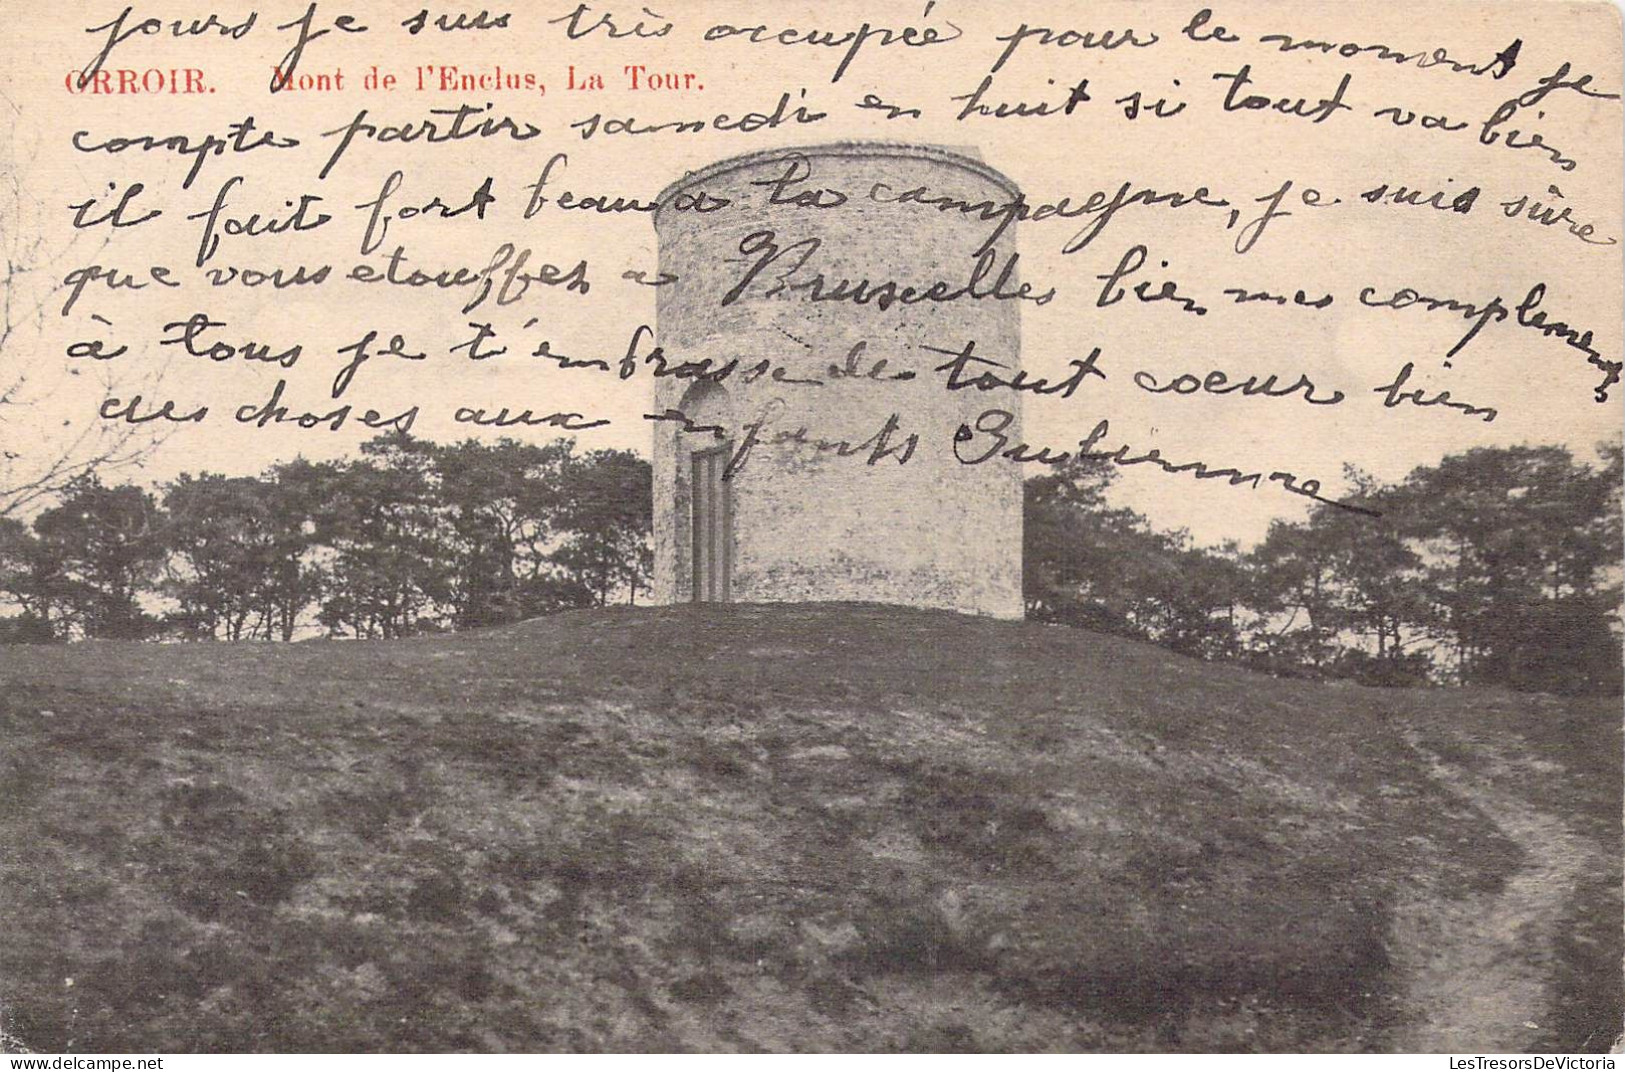 jours je suis très occupée pour le moment je
ORROIR. Mont de l'Enclus, La Tour.
compte partir samedi en huit si tout va bien
il fait fort beau a la campagne, je suis sûre
que vous etouffez a Bruxelles bien mes compliments
à tous je t'embrasse de tout coeur bien
des choses aux enfants
LesTresorsDeVictoria